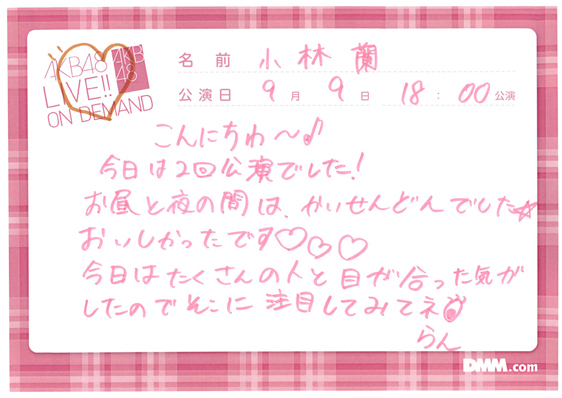 AKB48
LIVE!!
ON DEMAND
AKB
48
名前 小林蘭
公演日 9月9日 18:00公演
こんにちわ〜♪
今日は2回公演でした!
お昼と夜の間は、かいせんどんでした☆
おいしかったです♡♡♡
今日はたくさんの人と目が合った気が
したのでそこに注目してみてネ♪
らん
DMM.com